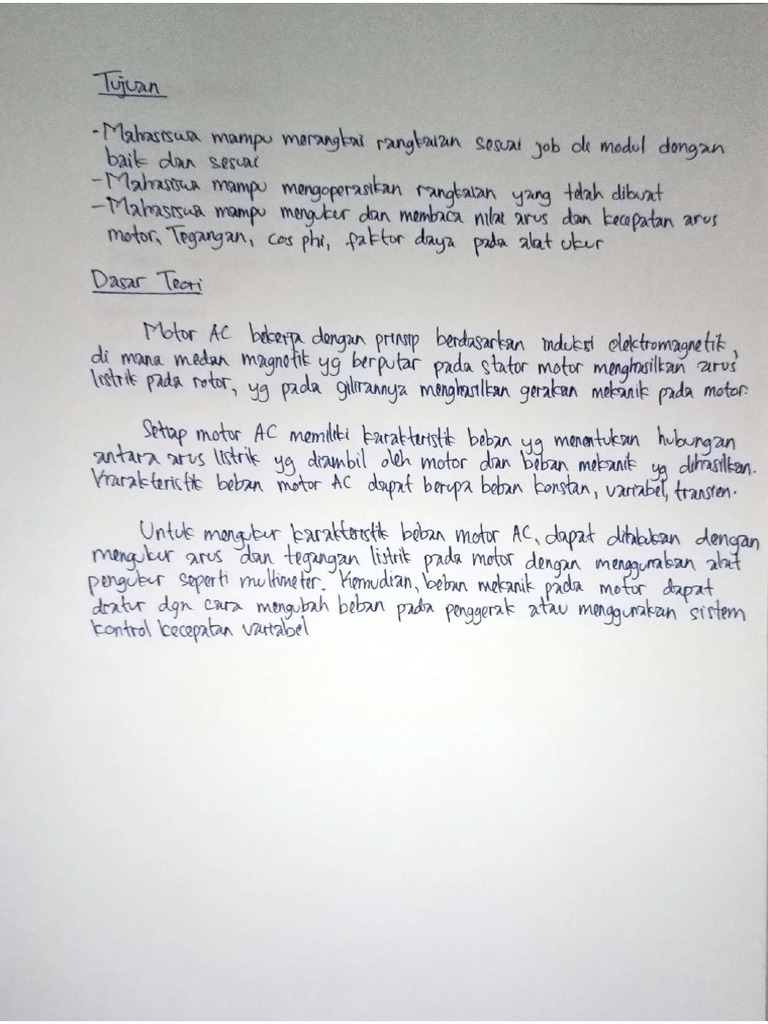 Tujuan
- Mahasiswa mampu merangkai rangkaian sesuai job de modul dengan
baik dan sesuai
- Mahasiswa mampu mengoperasikan rangkaian yang telah dibuat
- Mahasiswa mampu mengukur dan membaca nilai arus dan kecepatan arus
motor, Tegangan, cos phi, faktor daya pada alat ukur
Dasar Teori
Motor AC bekerja dengan prinsip berdasarkan induksi elektromagnetik,
di mana medan magnetik yg berputar pada stator motor menghasilkan arus
listrik pada rotor, yg pada gilirannya menghasilkan gerakan mekanik pada motor.
Setiap motor AC memiliki karakteristik beban yg menentukan hubungan
antara arus listrik yg diambil oleh motor dan beban mekanik yg dihasilkan.
Krarakteristik beban motor AC dapat berupa beban konstan, variabel, transien.
Untuk mengukur karakteristik beban motor AC, dapat dilakukan dengan
mengukur arus dan tegangan listrik pada motor dengan menggunakan alat
pengukur seperti multimeter. Kemudian, beban mekanik pada motor dapat
diatur dgn cara mengubah beban pada penggerak atau menggunakan sistem
kontrol kecepatan variabel